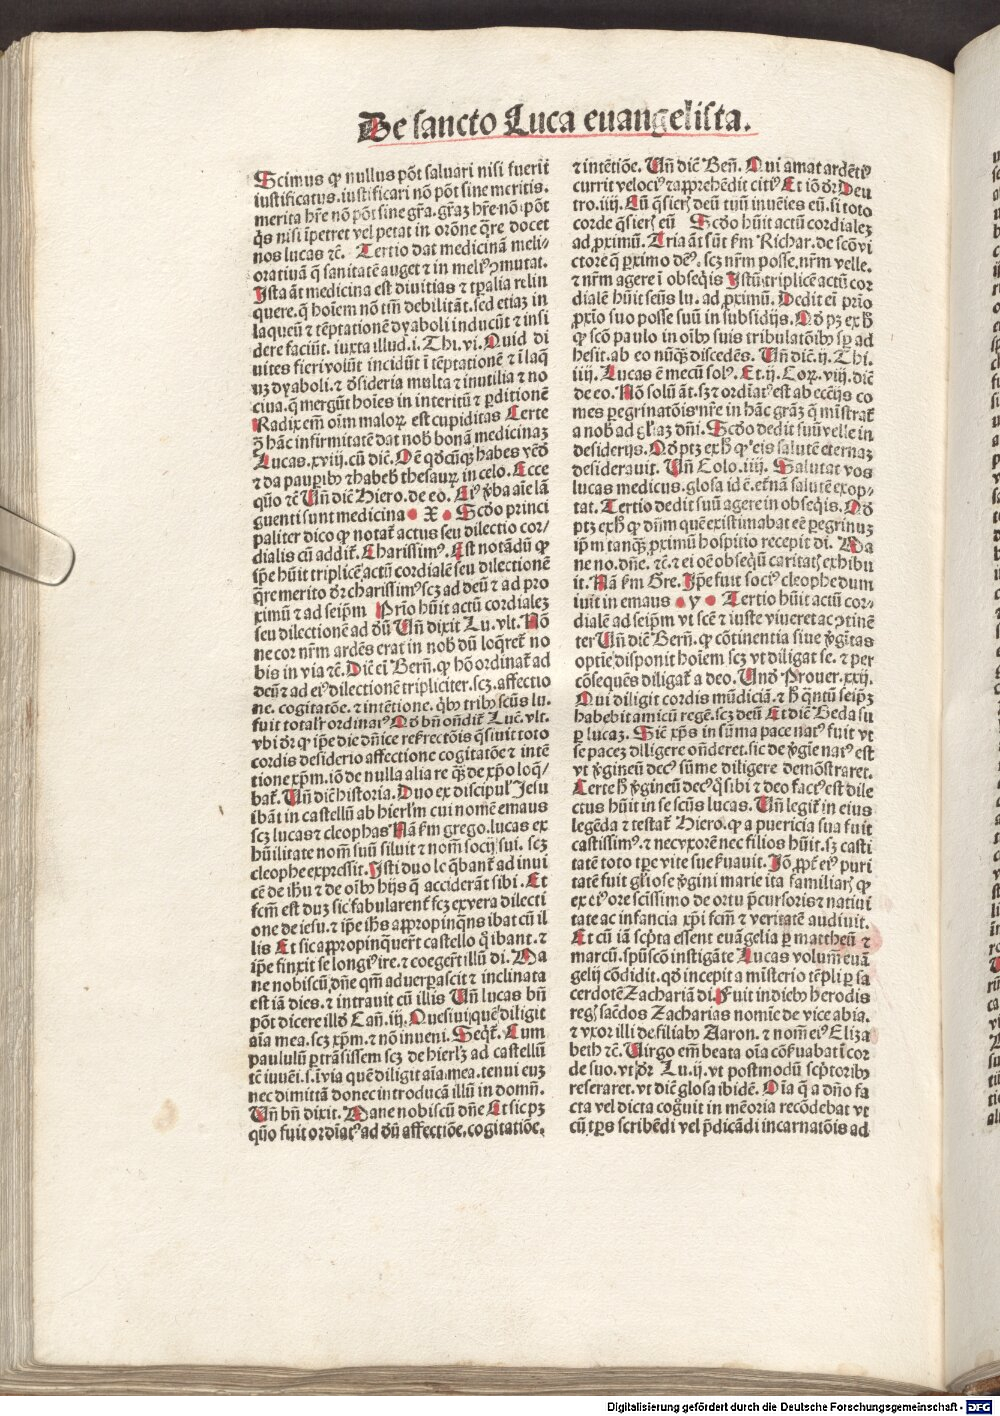 De sancto Luca euangelista.
Scimus ꝙ nullus põt saluari nisi fuerit
iustificatus. iustificari nõ põt sine meritis.
merita hr̃e nõ põt sine gr̃a. gr̃aʒ hr̃e nõ põt
q̃s nisi ĩpetret vel petat in or̃one q̃re docet
nos lucas ⁊c̃. Tertio dat medicinã meli⸗
oratiuã q̃ sanitatẽ auget ⁊ in meliꝰ ꝯmutat.
Ista ãt medicina est diuitias ⁊ tꝑalia relin
quere. q̃ hoĩem nõ tm̃ debilitãt. sed etiaʒ in
laqueũ ⁊ tẽptationẽ dyaboli inducũt ⁊ insi
dere faciũt. iuxta illud .i. Thi. vi. Quid di
uites fieri volũt incidũt ĩ tẽptationẽ ⁊ ĩ laq̃
uʒ dyaboli. ⁊ ꝺ̃sideria multa ⁊ inutilia ⁊ no
ciua. q̃ mergũt hoĩes in interitũ ⁊ ꝑditionẽ
Radix em̃ oĩm maloꝝ est cupiditas Certe
ꝯ̃ hãc infirmitatẽ dat nob̃ bonã medicinaʒ
Lucas. xviij. cũ dic̃. Oẽ qꝺcũqʒ habes vẽꝺ̃
⁊ da pauꝑibꝰ ⁊ habeb̃ thesauꝝ in celo. Ecce
quõ ⁊c̃ Vñ dic̃ Hiero. de eo. Eiꝰ v̾ba aĩe lã
guenti sunt medicina • X • Scꝺo princi
paliter dico ꝙ notat̃ actus seu dilectio cor⸗
dialis cũ addit̃. Charissimꝰ. Est notãdũ ꝙ
ip̃e hũit triplicẽ actũ cordialẽ seu dilectionẽ
q̃re merito ꝺr̃ charissimꝰ scʒ ad deũ ⁊ ad pro
ximũ ⁊ ad seip̃m Pr̃io hũit actũ cordialeʒ
seu dilectionẽ ad ꝺũ Vñ dixit Lu. vlt. Nõ
ne cor nr̃m ardẽs erat in nob̃ dũ loq̃ret̃ no
bis in via ⁊c̃. Dic̃ eĩ Berñ. ꝙ hõ ordinat̃ ad
deũ ⁊ ad eiꝰ dilectionẽ tripliciter. scʒ. affectio
ne. cogitatõe. ⁊ intẽtione. q̃bꝰ tribꝰ scũs lu.
fuit total̃r ordinatꝰ Qꝺ bñ oñdit̃ Luc̃. vlt.
vbi ꝺr̃ ꝙ ip̃e die dñice resurrectõis q̃siuit toto
cordis desiderio affectione cogitatõe ⁊ intẽ
tione xp̃m. iõ de nulla alia re q̃ʒ de xp̃o loq̃⸗
bat̃. Vñ dic̃ historia. Duo ex discipul̃ Jesu
ibãt in castellũ ab hierl̃m cui nomẽ emaus
scʒ lucas ⁊ cleophas Nã ẜm grego. lucas ex
hũilitate nom̃ suũ siluit ⁊ nom̃ socij sui. scʒ
cleophe expressit. Isti duo loq̃bant̃ ad inui
cẽ de ihũ ⁊ de oĩbꝰ hijs q̃ acciderãt sibi. Et
fcm̃ est duʒ sic fabularent̃ scʒ ex vera dilecti
one de iesu. ⁊ ip̃e ihs̃ appropinq̃ns ibat cũ il
lis Et sic appropinquer̃t castello q̃ ibant. ⁊
ip̃e finxit se longiꝰ ire. ⁊ coeger̃t illũ di. Ma
ne nobiscũ dñe qm̃ aduerꝑascit ⁊ inclinata
est iã dies. ⁊ intrauit cũ illis Vñ lucas bñ
põt dicere illꝺ Cañ. iij. Quesiui quẽ diligit
aĩa mea. scʒ xp̃m. ⁊ nõ inueni. Seq̃t̃. Cum
paululũ ꝑtrãsissem scʒ de hierl̃ʒ ad castellũ
tc̃ iuuei. s. ĩ via quẽ diligit aĩa mea. tenui euʒ
nec dimittã donec introducã illũ in domũ.
Vñ bñ dixit. Mane nobiscũ dñe Et sic pʒ
quõ fuit ordĩatꝰ ad ꝺũ affectiõe. cogitatiõe.
⁊ intẽtiõe. Vñ dic̃ Beñ. Qui amat ardẽtiꝰ
currit velociꝰ ⁊ apprehẽdit citiꝰ Et iõ ꝺr̃ Deu
tro. iiij. Cũ q̃sierꝭ deũ tuũ inuẽies eũ. si toto
corde q̃sierꝭ eũ Scꝺo hũit actũ cordialeʒ
ad ꝓximũ. Tria ãt sũt ẜm Richar. de scõ vi
ctore q̃ ꝓximo dẽꝰ. scʒ nr̃m posse. nr̃m velle.
⁊ nr̃m agere ĩ obseq̃is Istũ triplicẽ actũ cor
dialẽ hũit scũs lu. ad ꝓximũ. Dedit eĩ pr̃io
ꝓxĩo suo posse suũ in subsidijs. Qꝺ pʒ ex h̃
ꝙ scõ paulo in oĩbꝰ suis tribulatõibꝰ sꝑ ad
hesit. ab eo nũq̃ʒ discedẽs. Vñ dic̃ .ij. Thi.
iiij. Lucas ẽ mecũ solꝰ. Et .ij. Coꝝ. viij. dic̃
de eo. Nõ solũ ãt. sʒ ⁊ ordĩatꝰ est ab ecc̃ijs co
mes ꝑegrinatõis nr̃e in hãc gr̃aʒ q̃ mĩstrat̃
a nob̃ ad gl̃iaʒ dñi. Scꝺo dedit suũ velle in
desiderijs. Qꝺ ptʒ ex h̃ ꝙ eis salutẽ eternaʒ
desiderauit. Vñ Colo. iiij. Salutat vos
lucas medicus. glosa id ẽ. et̃nã salutẽ exop⸗
tat. Tertio dedit suũ agere in obseq̃is. Qꝺ
ptʒ ex h̃ ꝙ dñm quẽ existimabat eẽ ꝑegrinuʒ
ip̃m tanq̃ʒ ꝓximũ hospitio recepit di. Ma
ne no. dñe. ⁊c̃. ⁊ ei oẽ obseq̃ũ caritatꝭ exhibu
it. Nã ẜm Gre. Ip̃e fuit sociꝰ cleophe dum
iuit in emaus • y • Tertio hũit actũ cor⸗
dialẽ ad seip̃m vt scẽ ⁊ iuste viueret ac ꝯtinẽ
ter Vñ dic̃ Berñ. ꝙ cõtinentia siue v̾gĩtas
optie disponit hoĩem scʒ vt diligat se. ⁊ per
cõseq̃ẽs diligat̃ a deo. Vnꝺ Prouer. xxij.
Qui diligit cordis mũdiciã. ⁊ h̃ q̃ntũ seip̃ʒ
habebit amicũ regẽ. scʒ deũ Et dic̃ Beda su
ꝑ lucaʒ. Sic̃ xp̃s in sũma pace natꝰ fuit vt
se paceʒ diligere oñderet. sic de v̾gĩe natꝰ est
vt v̾gineũ decꝰ sũme diligere demõstraret.
Certe h̃ v̾gineũ decꝰ q̃ sibi ⁊ deo factꝰ est dile
ctus hũit in se scũs lucas. Vñ legit̃ in eius
legẽda ⁊ testat̃ Hiero. ꝙ a puericia sua fuit
castissimꝰ. ⁊ nec vxorẽ nec filios hũit. sʒ casti
tatẽ toto tp̃e vite sue ẜuauit. Jõ ꝓpt̃ eiꝰ puri
tatẽ fuit gl̃iose v̾gini marie ita familiarꝭ ꝙ
ex eiꝰ ore scissimo de ortu p̃cursoris ⁊ natiui
tate ac infancia xp̃i fcm̃ ⁊ veritatẽ audiuit.
Et cũ iã scp̃ta essent euãgelia ꝑ mattheũ ⁊
marcũ. spũscõ instigãte Lucas volum̃ euã
gelij cõdidit. qꝺ incepit a mĩsterio tẽpli ꝑ sa
cerdotẽ Zachariã di. Fuit in diebꝰ herodis
regꝭ sac̃dos Zacharias nomĩe de vice abia.
⁊ vxor illi de filiabꝰ Aaron. ⁊ nom̃ eiꝰ Eliza
beth ⁊c̃. Virgo em̃ beata oĩa cõẜuabat ĩ cor
de suo. vt ꝺr̃ Lu. ij. vt postmodũ scp̃toribꝰ
reseraret. vt dic̃ glosa ibidẽ. Oĩa q̃ a dño fa
cta vel dicta cog̃uit in mẽoria recõdebat vt
cũ tp̃s scribẽdi vel p̃dicãdi incarnatõis ad
Digitalisierung gefördert durch die Deutsche Forschungsgemeinschaft - DFG